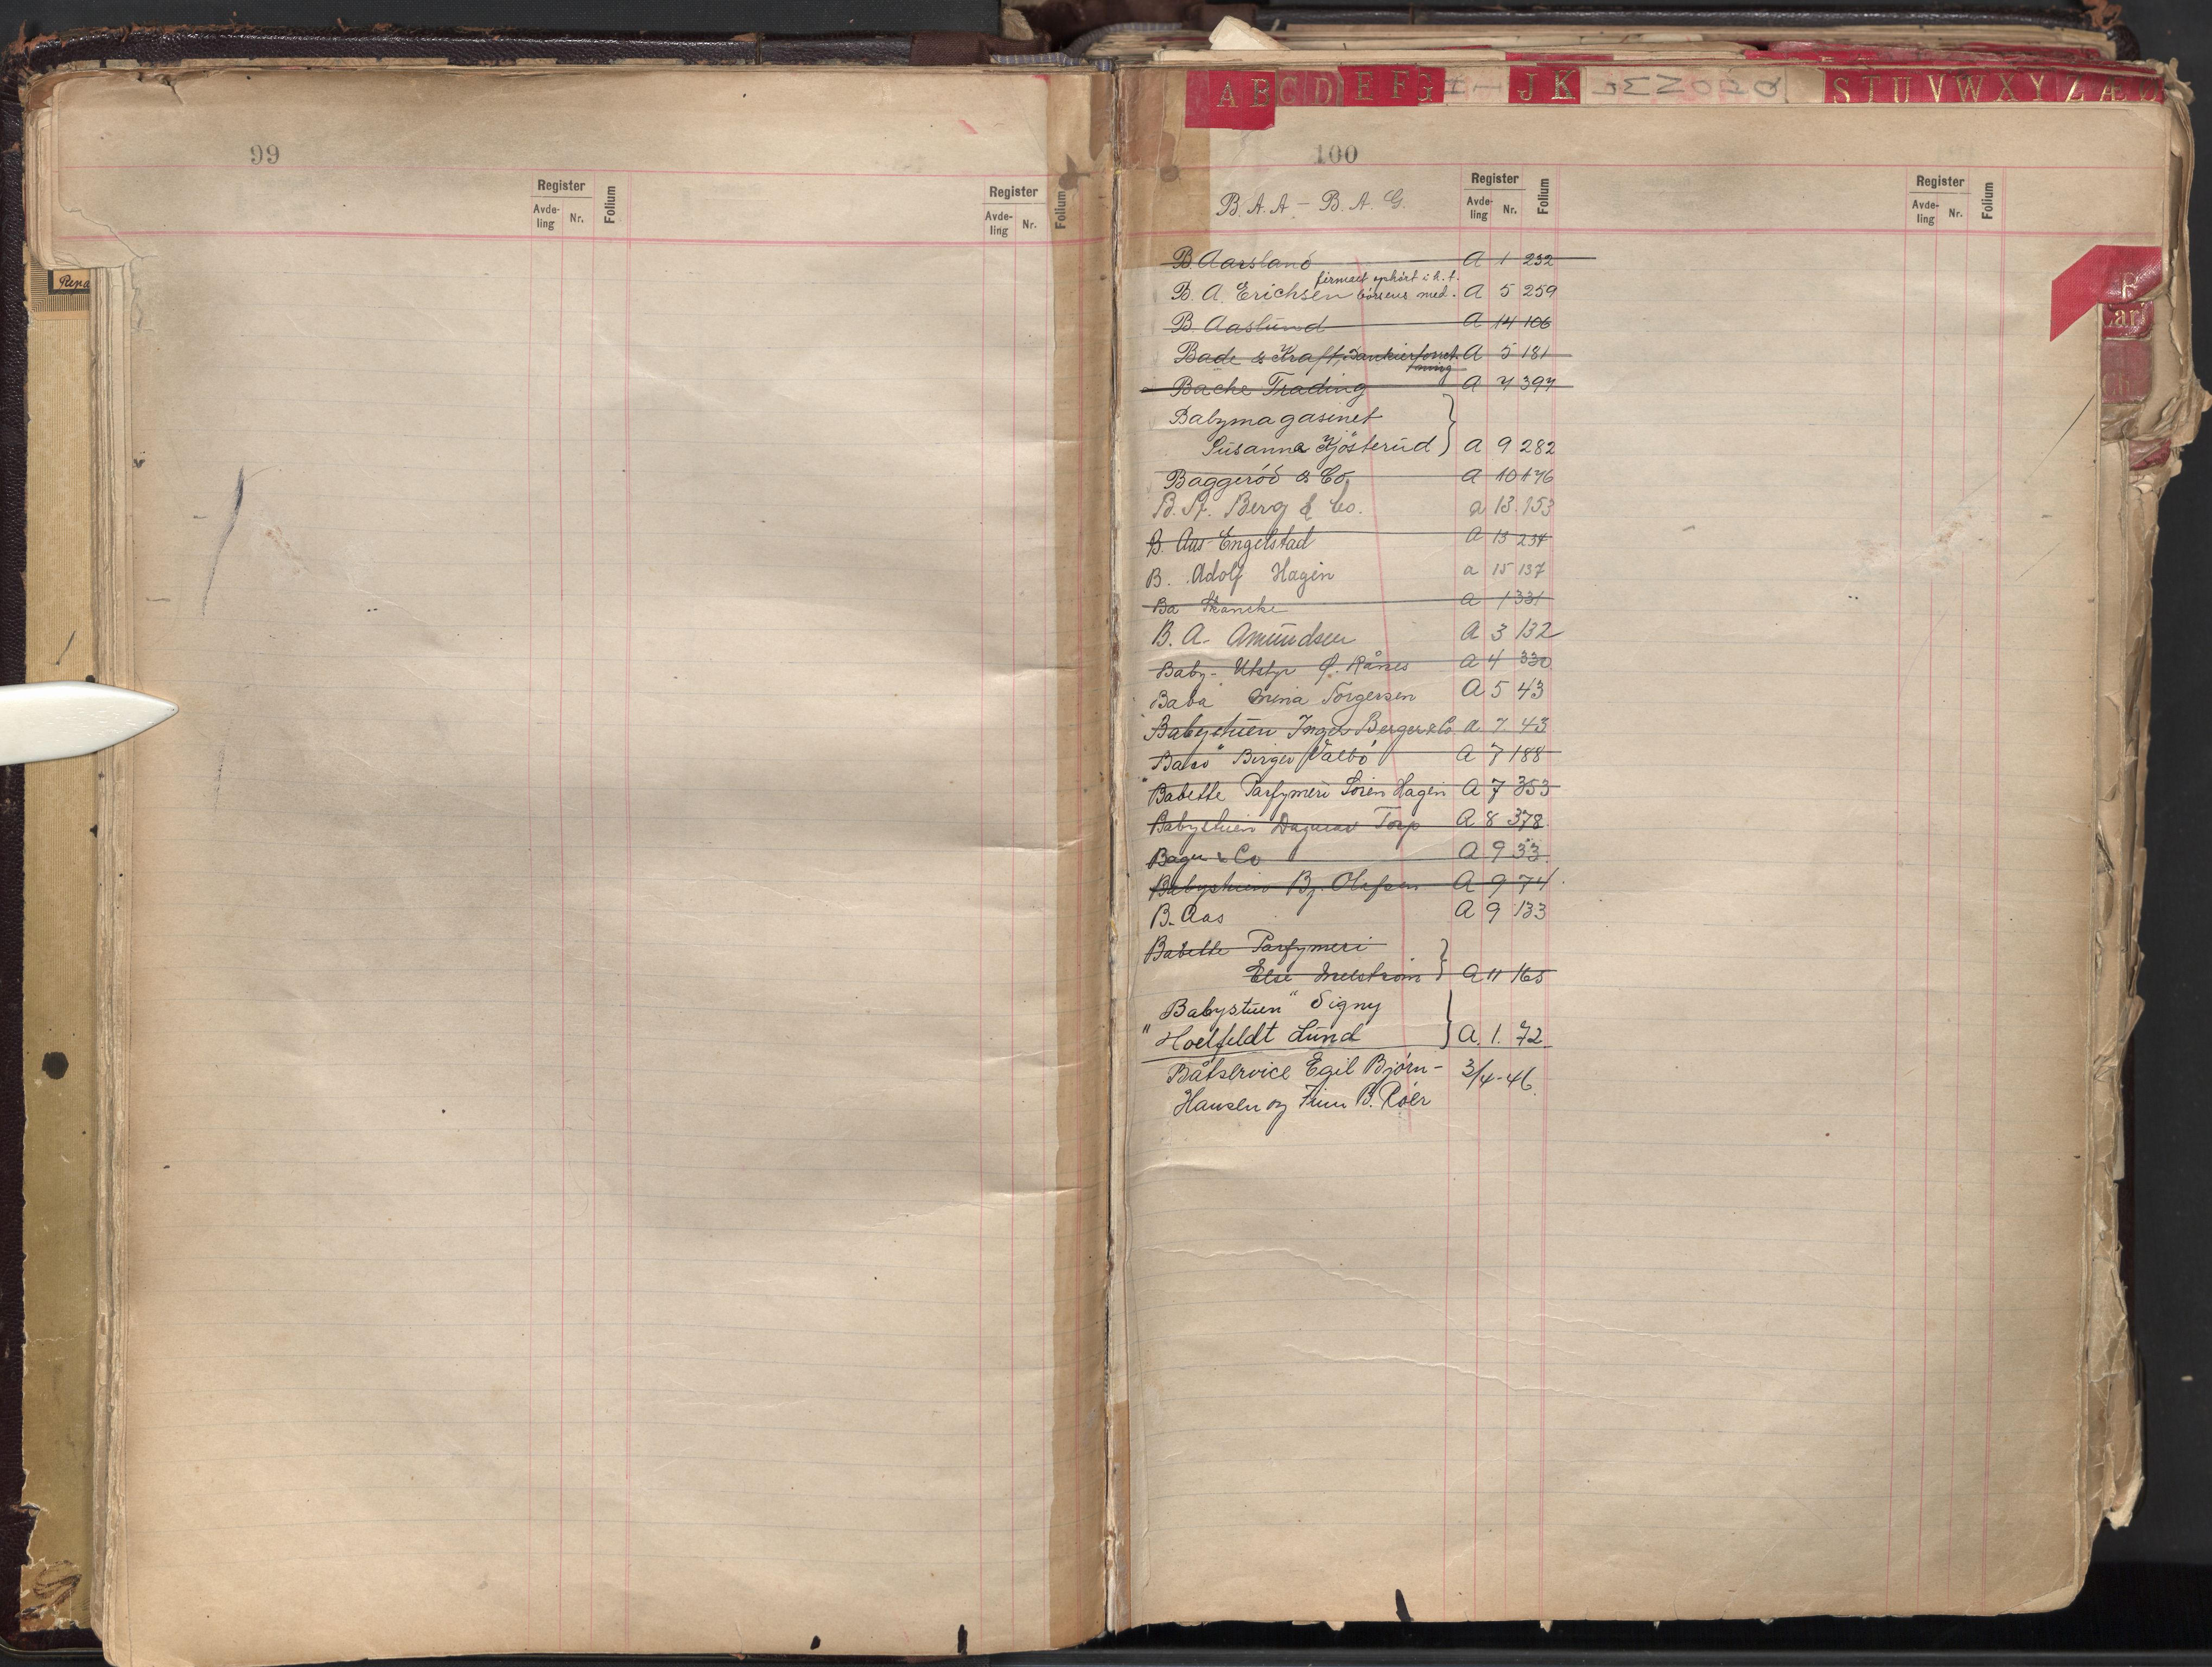 99
Register
Avde-
ling
Nr.
Folium
Register
Avde-
ling
Nr.
Folium
Repa
A B C D E F G H I J K L M N O P Q S T U V W X Y Z Æ Ø
100
B.A.A - B.A.G.
Register
Avde-
ling
Nr.
Folium
Register
Avde-
ling
Nr.
Folium
B. Aarsland A 1 232
firmaet ophørt i h.t.
B. A. Erichsen børsens med. A 5 259
B. Aaslund A 14 106
Bade & Kraft, Bankierforret- A 5 181
ning
Bache Trading A 7 397
Babymagasinet
Susanna Kjösterud A 9 282
Baggeröd & Co. A 10 176
B. A. Berg & Co. a 13.153
B. Aas-Engelstad A 13 234
B. Adolf Hagen a 15 137
Ba Skancke a 1 331
B. A. Amundsen A 3 132
Baby-Utstyr A 4 330
Baba Torgersen A 5 43
Babystuen Inger Berger & Co. A 7. 43
Birger Valbö A 7 188
"Babette Parfymeri Hagen A 7 353
Babystuen Dagmar Torp A 8 378
& Co A 9 33
Babystuen Bj. Olefsen A 9 74
B. Aas A 9 133
Babette Parfymeri
Else A 11 165
Babystuen" Signy
"Hoelfeldt Lund A. 1. 72
Båtservice Egil Bjørn- 3/4-46
Hansen og Finn B. Röer